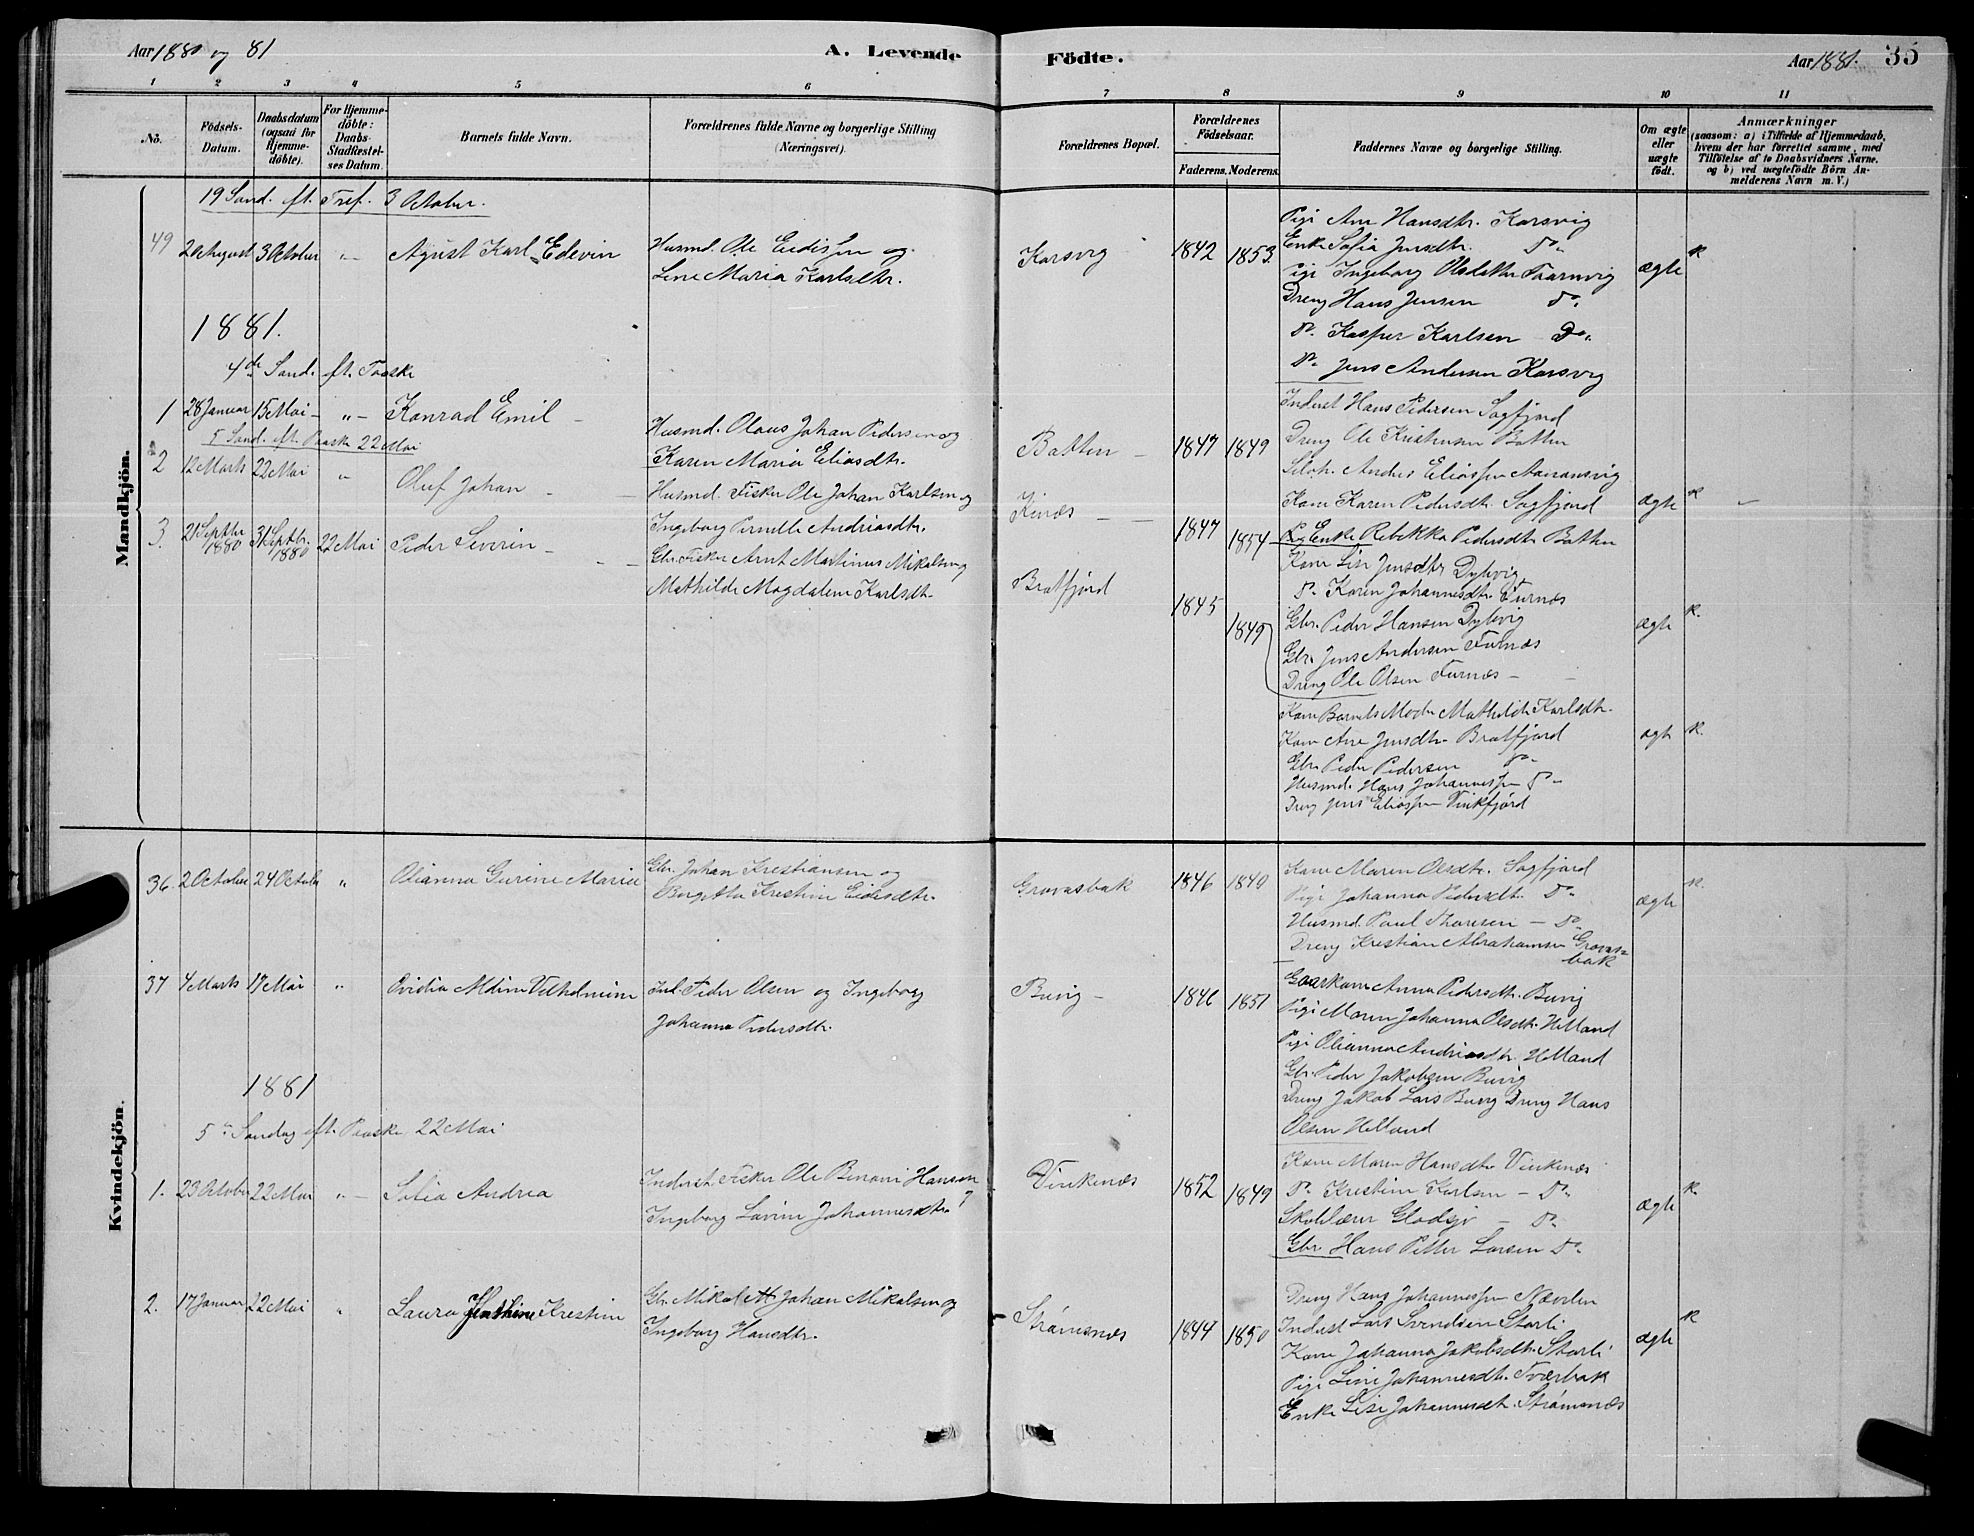 Aar 1880 og 81
A. Levende Födte.
Aar 1881. 35
1 2 3 4 5 6 7 8 9 10 11
No.
Födsels-Datum.
Daabsdatum (ogsaa for Hjemme-döbte).
For Hjemme-döbte: Daabs-Stadfæstel-ses Datum.
Barnets fulde Navn.
Forældrenes fulde Navne og borgerlige Stilling (Næringsvei).
Forældrenes Bopæl.
Forældrenes Födselsaar.
Faderens. Moderens.
Faddernes Navne og borgerlige Stilling.
Om ægte eller uægte födt.
Anmærkninger
(saasom: a) i Tilfælde af Hjemmedaab,
hvem der har forrettet samme, med
Tilföielse af to Daabsvidners Navne,
og b) ved uægtefödte Börn An-
melderens Navn m. V.)
Mandkjön.
19 Sønd. eft. Tref. 3 October.
49 2 August 3 October " Agust Karl Edevin
Husmd. Ole Eedissen og
Line Maria Karlsdtr.
Korsvig 1842 1853 ægte K
Pige Ane Hansdtr. Korsvig
Enke Sofia Jensdtr. Do.
Pige Ingeborg Olsdatter Taarnvig
Dreng Hans Jensen Do.
Do. Kasper Karlsen Do.
Do. Jens Andersen Korsvig
1881.
4de Sønd. eft. Paaske
1 28 Januar 15 Mai " Konrad Emil
Husmd. Olaus Johan Pedersen og
Karen Maria Eliasdtr.
Botten 1847 1849 ægte K
Inderst Hans Pedersen Sagfjord
Dreng Ole Kristensen Botten
Anders Eliassen
Kone Karen Pedersdtr. Sagfjord
Enke Rebekka Pedersdtr. Botten
5 Sønd. eft. Paaske 22 Mai
2 12 Marts 22 Mai " Oluf Johan
Husmd. Fisker Ole Johan Karlsen og
Ingeborg Pernelle Andriasdtr.
Kinæs 1847 1854 ægte K.
Kone Lise Jensdtr Dybvig
Do. Karen Johannesdtr. Furnæs
Gbr. Peder Hansen Dybvig
Gbr. Jens Andersen Furnæs
Dreng Ole Olsen Furnæs
3. 21 Septbr 1880 31 Septbr. 1880 22 Mai Peder Severin
Gbr. Fisker Arnt Martinus Mikalsen og
Mathilde Magdalene Karlsdtr.
Bratfjord 1845 1849 ægte K.
Kone Barnets Moder Mathilde Karlsdtr.
Kone Ane Jensdtr. Bratfjord
Gbr. Peder Pedersen Do.
Husmd. Hans Johannessen Do.
Dreng Jens Eliassen Vinkfjord
Kvindekjön.
36. 2 October 24 October " Olianna Gurine Marie
Gbr. Johan Krestiansen og
Bergitta Krestine Eidisdtr.
Grovasbak 1846 1849 ægte K.
Kone Maren Olsdtr. Sagfjord
Pige Johanna Pedersdtr. Do.
Husmd. Paul Thoresen - Do.
Dreng Krestian Abrahamsen Grovas-
bak
37 4 Marts 17 Mai " Ovidia Aldine Vilhelmine
Ind. Peder Olsen og Ingeborg
Johanna Pedersdtr.
Buvig 1846 1851
Gaarkone Anna Pedersdtr. Buvig
Pige Maren Johanna Olsdtr. Helland
Pige Olianna Andriasdtr. Helland
Gbr. Peder Jakobsen Buvig
Dreng Jakob Lars Buvig Dreng Hans
Olsen Helland
1881
5te Søndag eft. Paaske 22 Mai
1. 23 October 22 Mai " Sofia Andrea
Inderst Fisker Ole Benoni Hansen
Ingeborg Lovine Johannesdtr.
Vinkenæs 1852 1849 ægte K.
Kone Maren Hansdtr Vinkenæs
Do. Krestine Karlsen - Do.
Skolelærer Gladsjø - Do.
Gbr Hans Petter Larsen Do.
2. 17 Januar 22 Mai " Laura Jenthine Krestine
Gbr. Mikal A Johan Mikalsen og
Ingeborg Hansdtr.
Strømsnæs 1844 1850 ægte K
Dreng Hans Johannessen Nævelen
Inderst Lars Svendsen Storli
Kone Johanna Jakobsdtr. Storli
Pige Line Johannesdtr. Tverbak
Enke Lise Johannesdtr. Strømsnæs